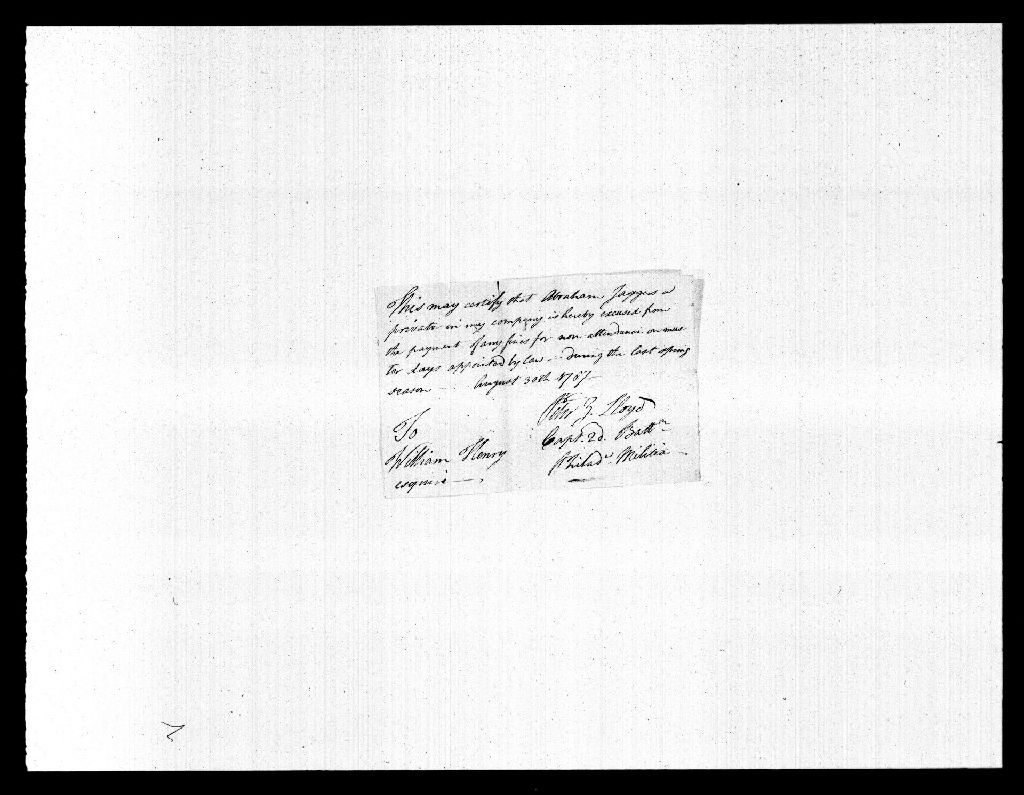 This may certify that Abraham Jaggers a
private in my company is hereby excused from
the payment of any fines for non attendance on mus-
ter days appointed by law - during the last spring
season - August 30th 1787 -
Peter Z. Lloyd
Capt. 2d. Battn
Philada. Militia -
To
William Henry
esquire - ,